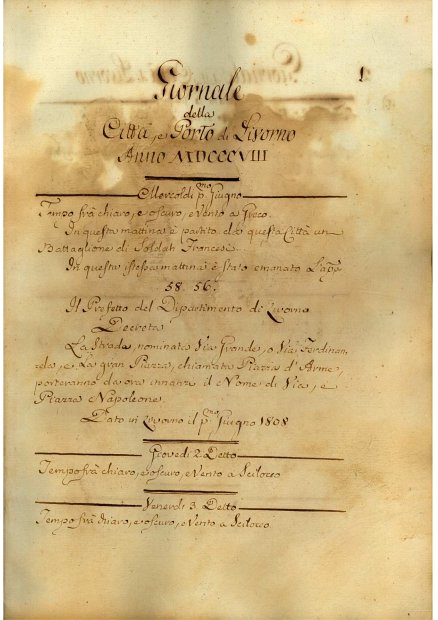 1
Giornale
della
Città, e Porto di Livorno
Anno MDCCCVIII
Mercoldi p.mo Giugno
Tempo frà chiaro, e oscuro, e Vento a Greco.
In questa mattina è partito da questa Città un
Battaglione di Soldati Francesi.
In questa istessa mattina è stato emanato L'app.o
58. 56.
Il Prefetto del Dipartimento di Livorno
Decreta
La Strada, nominata Via Grande, o Via Ferdinan
da, e La gran Piazza, chiamata Piazza d'Arme,
porteranno da ora innanzi il Nome di Via, e
Piazza Napoleone.
Dato in Livorno il p.mo Giugno 1808
Giovedi 2. Detto
Tempo frà chiaro, e oscuro, e Vento a Scilocco
Venerdi 3. Detto
Tempo frà chiaro, e oscuro, e Vento a Scilocco